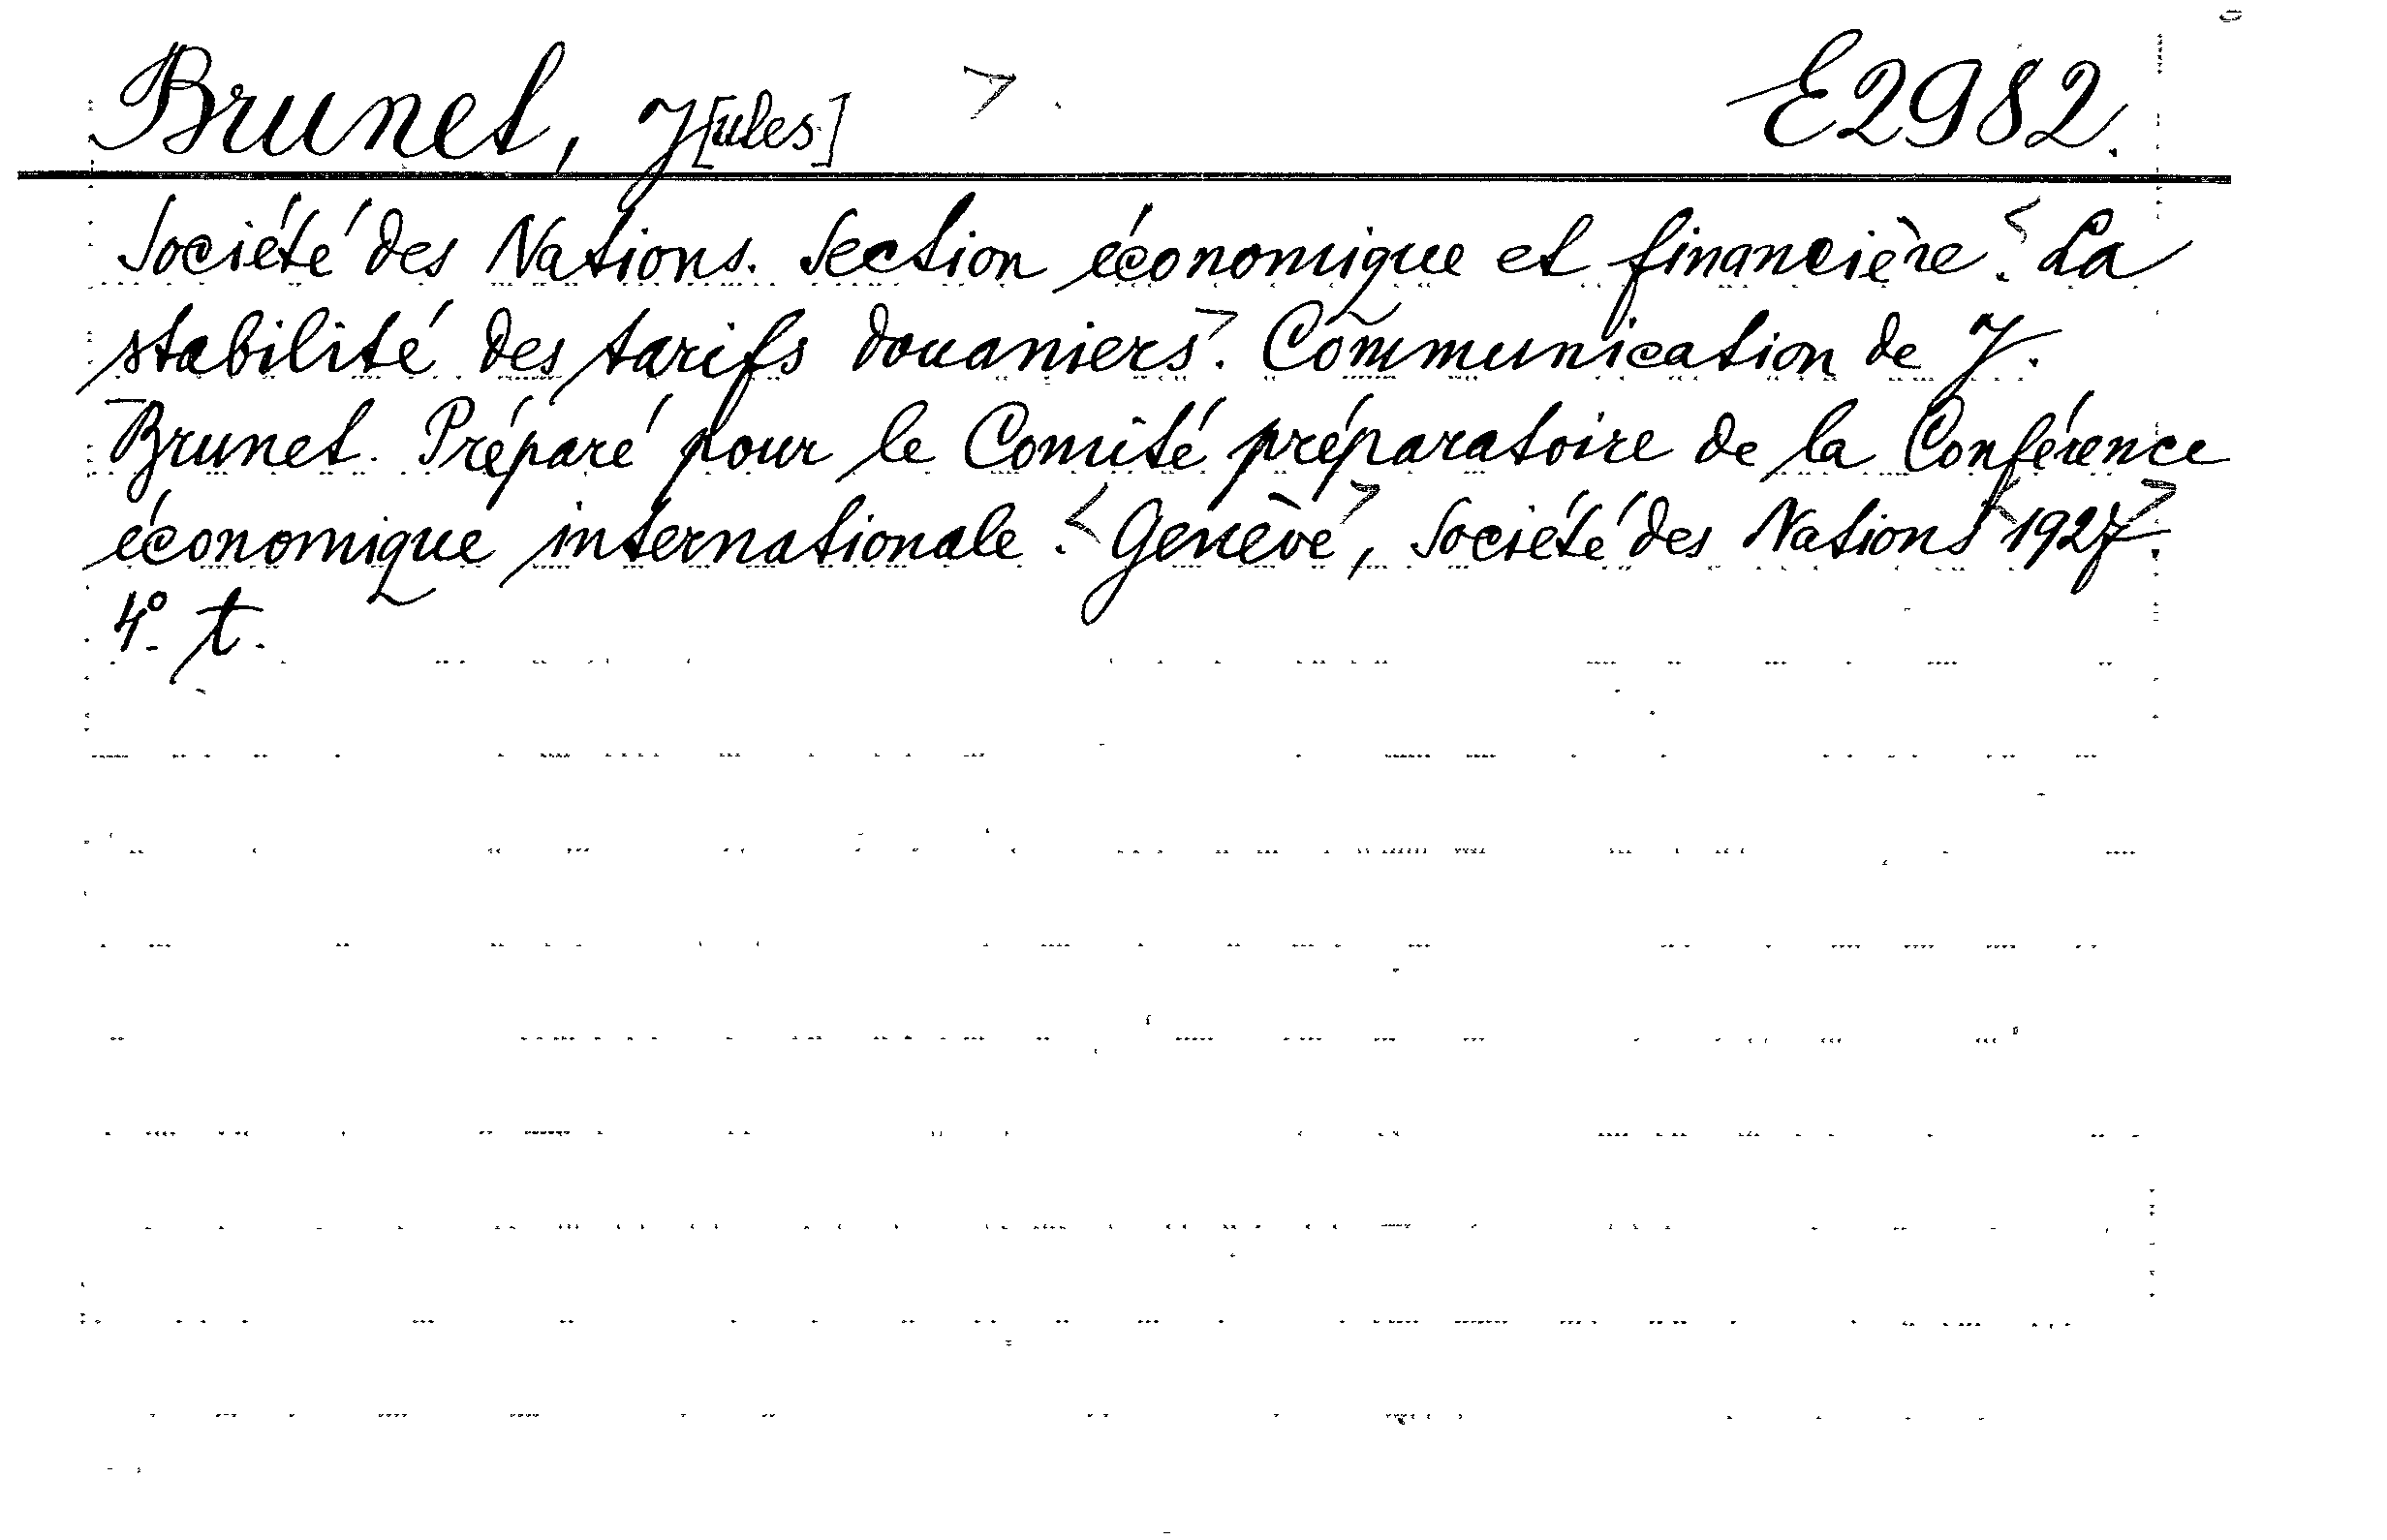 Brunet, J[ules] > E2982.
Société des Nations. Section économique et financière. < La
stabilité des tarifs douaniers >. Communication de J.
Brunet. Préparé pour le Comité préparatoire de la Conférence
économique internationale. < Genève >, Société des Nations < 1927 >.
4°. t.